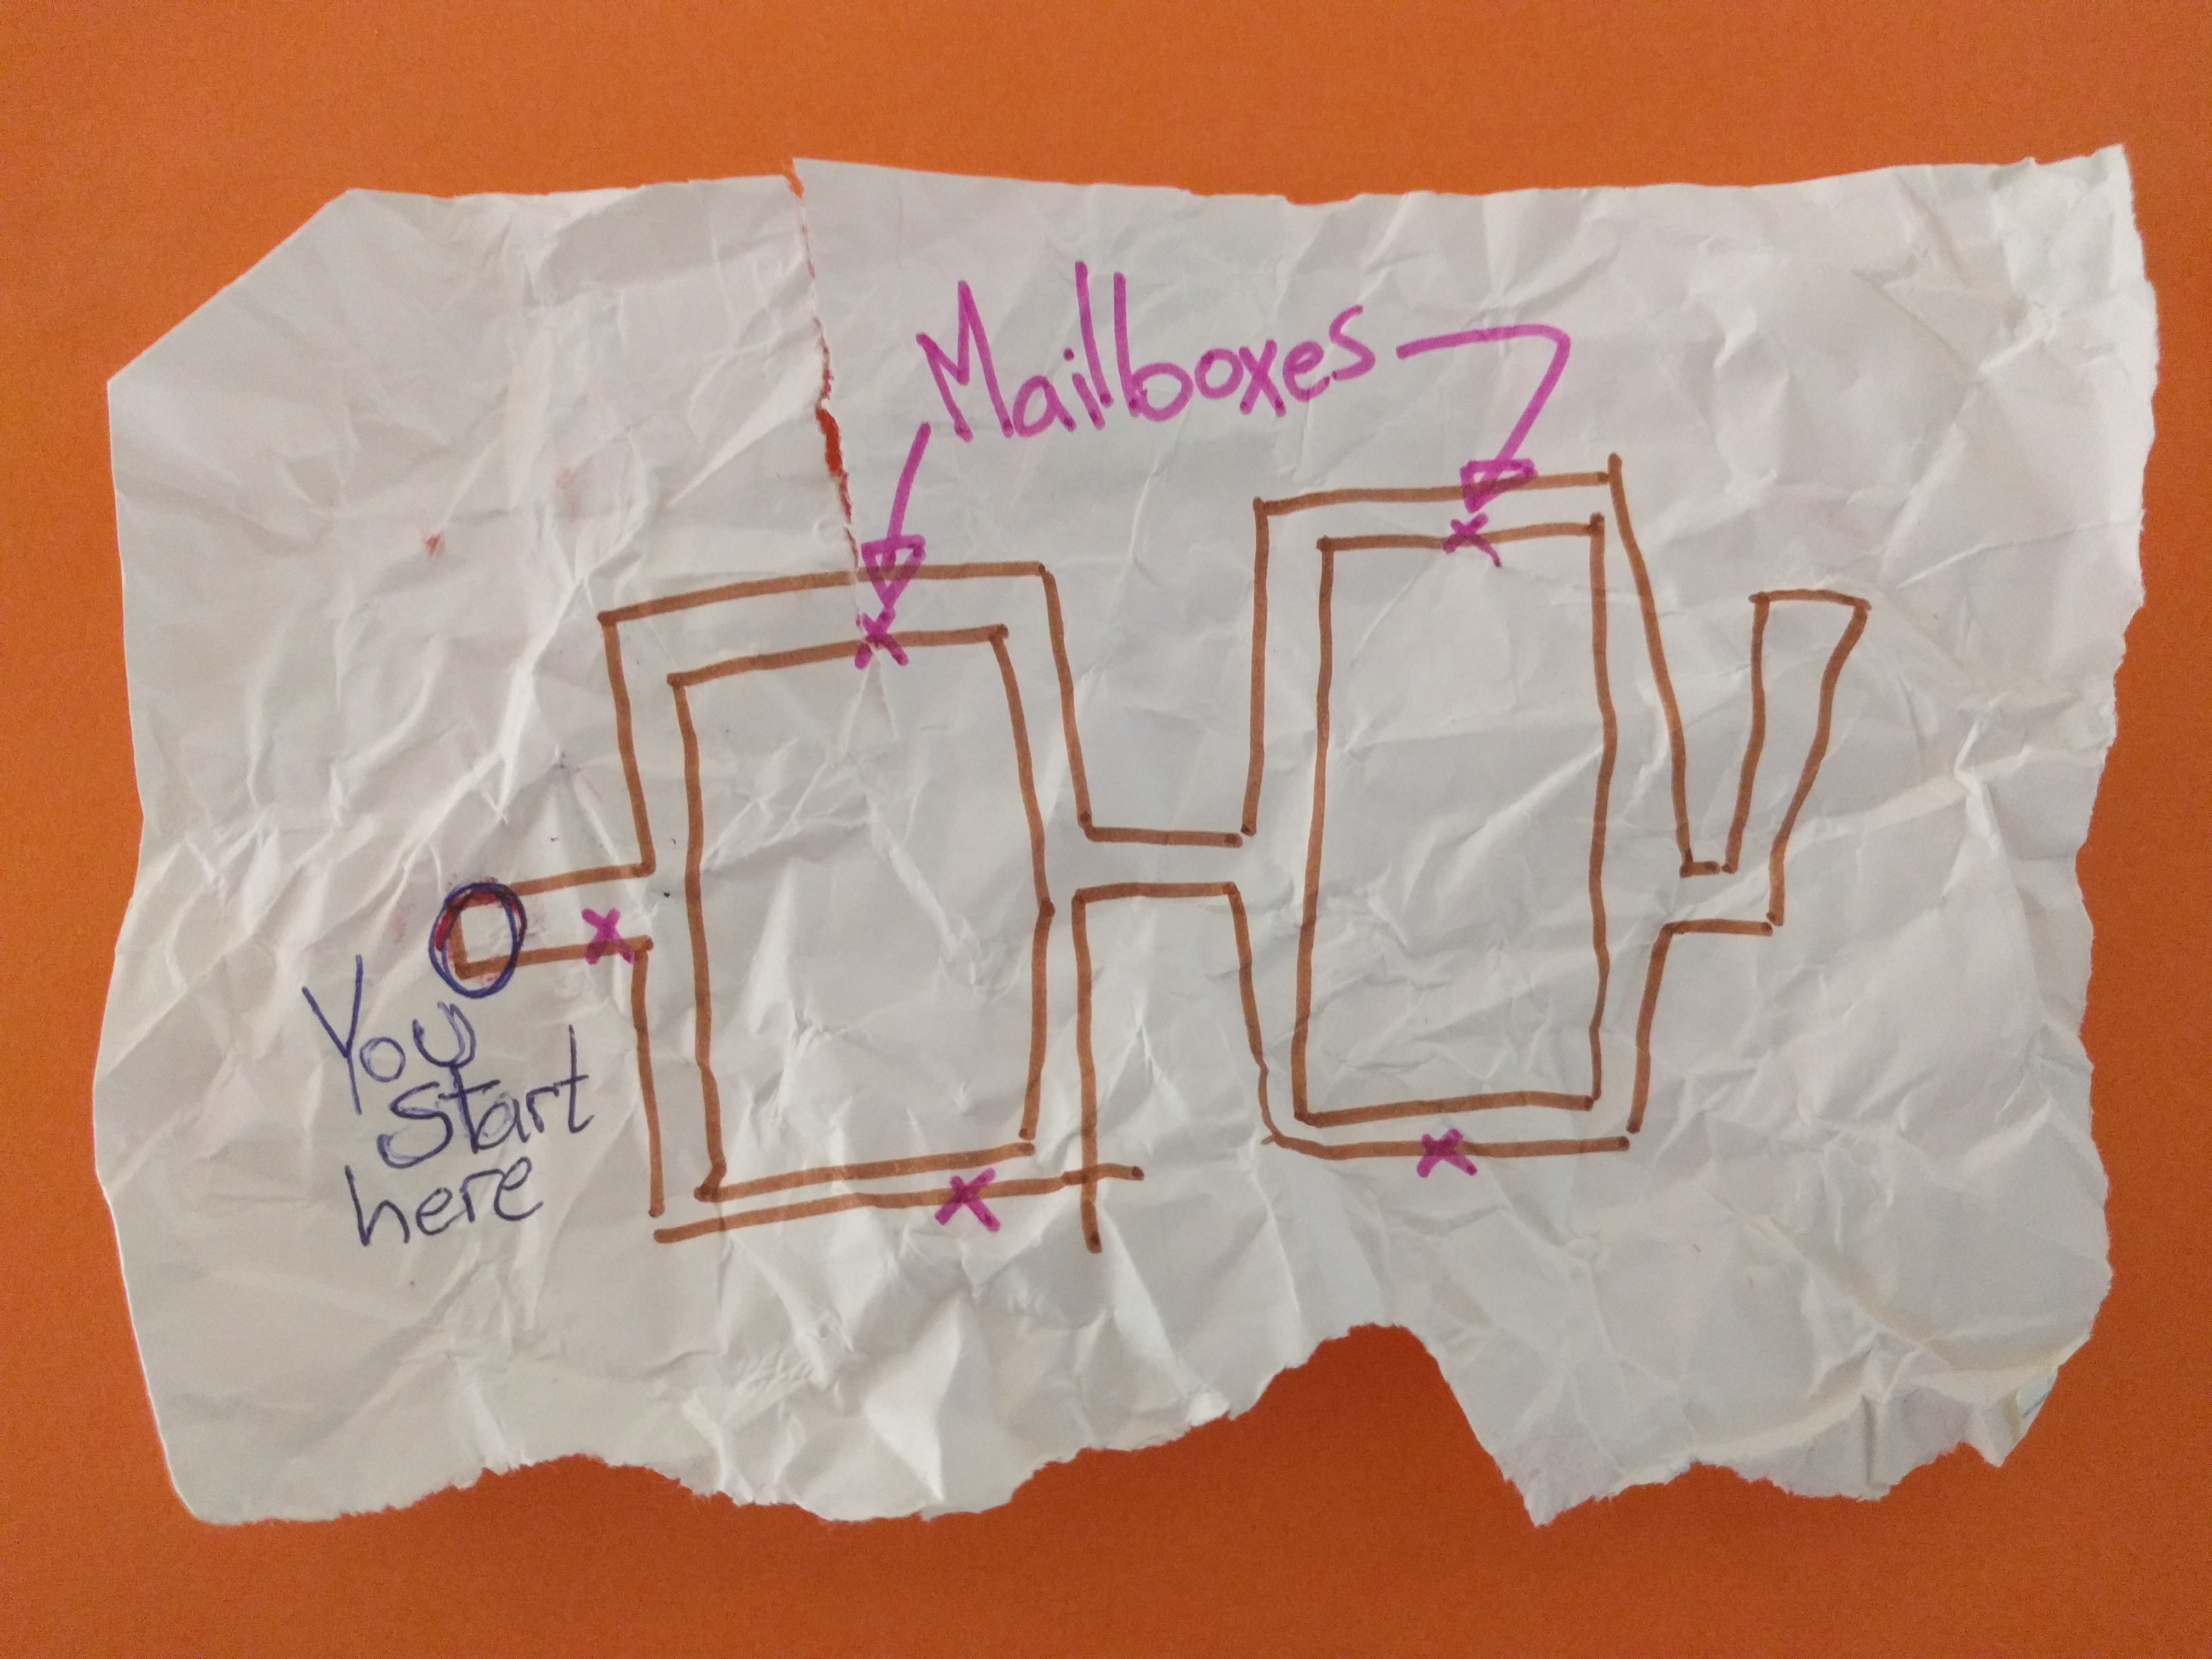 Mailboxes
You
start
here